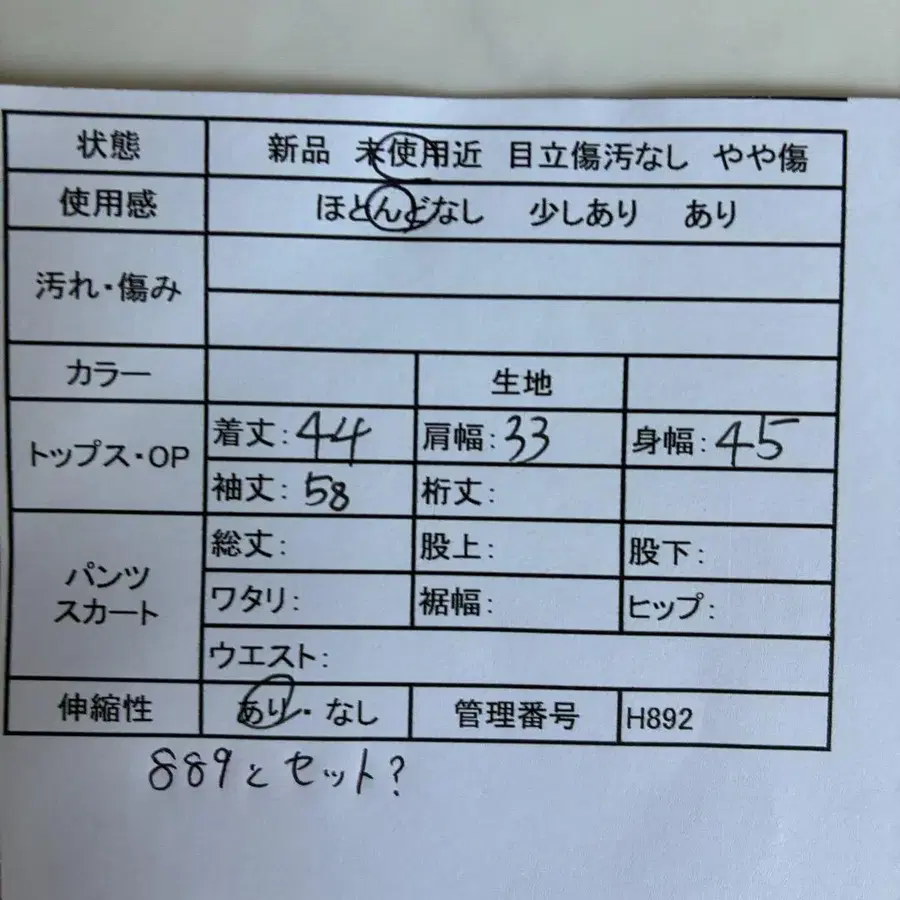 状態 新品 未使用近 目立傷汚なし やや傷
使用感 ほとんどなし 少しあり あり
汚れ・傷み
カラー 生地
トップス・OP 着丈:44 肩幅:33 身幅:45
袖丈:58 裄丈:
パンツ スカート 総丈: 股上: 股下:
ワタリ: 裾幅: ヒップ:
ウエスト:
伸縮性 あり・なし 管理番号 H892
889とセット?